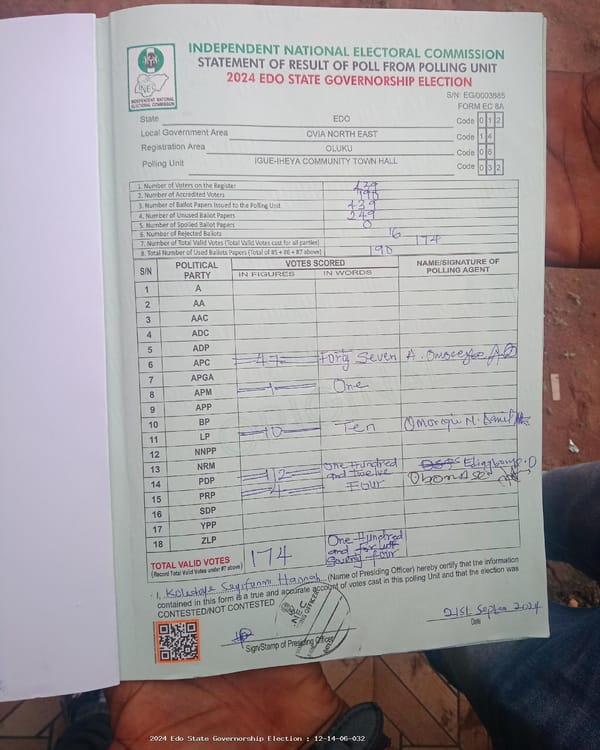 INDEPENDENT NATIONAL ELECTORAL COMMISSION
STATEMENT OF RESULT OF POLL FROM POLLING UNIT
2024 EDO STATE GOVERNORSHIP ELECTION
INEC
INDEPENDENT NATIONAL ELECTORAL COMMISSION
S/N: EG/0003885
FORM EC 8A
State EDO Code 0 1 2
Local Government Area OVIA NORTH EAST Code 1 4
Registration Area OLUKU Code 0 6
Polling Unit IGUE-IHEYA COMMUNITY TOWN HALL Code 0 3 2
1. Number of Voters on the Register 439
2. Number of Accredited Voters 190
3. Number of Ballot Papers Issued to the Polling Unit 439
4. Number of Unused Ballot Papers 249
5. Number of Spoiled Ballot Papers 0
6. Number of Rejected Ballots 16
7. Number of Total Valid Votes (Total Valid Votes cast for all parties) 174
8. Total Number of Used Ballots Papers (Total of #5 + #6 + #7 above) 190
S/N POLITICAL PARTY VOTES SCORED NAME/SIGNATURE OF POLLING AGENT
IN FIGURES IN WORDS
1 A
2 AA
3 AAC
4 ADC
5 ADP
6 APC 47 Forty Seven A.
7 APGA
8 APM 1 One
9 APP
10 BP
11 LP 10 Ten Omoregie N.
12 NNPP
13 NRM
14 PDP 112 One Hundred and twelve
15 PRP 4 Four
16 SDP
17 YPP
18 ZLP
TOTAL VALID VOTES 174 One Hundred and Seventy four
(Record Total Valid Votes under #7 above)
I, Hannah (Name of Presiding Officer) hereby certify that the information
contained in this form is a true and accurate account of votes cast in this polling Unit and that the election was
CONTESTED/NOT CONTESTED
INEC
21st 2024
Sign/Stamp of Presiding Officer
Date
2024 Edo State Governorship Election : 12-14-06-032